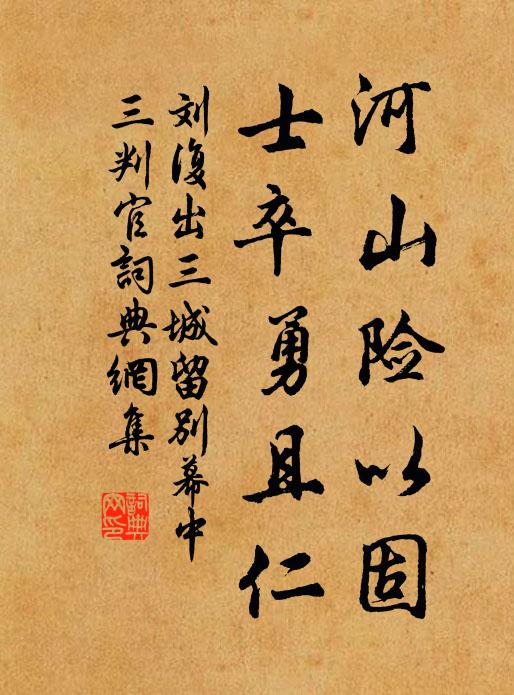 河山险以固
士卒勇且仁
刘復出三城留别幕中
三判官詞典網集
詞典
网印